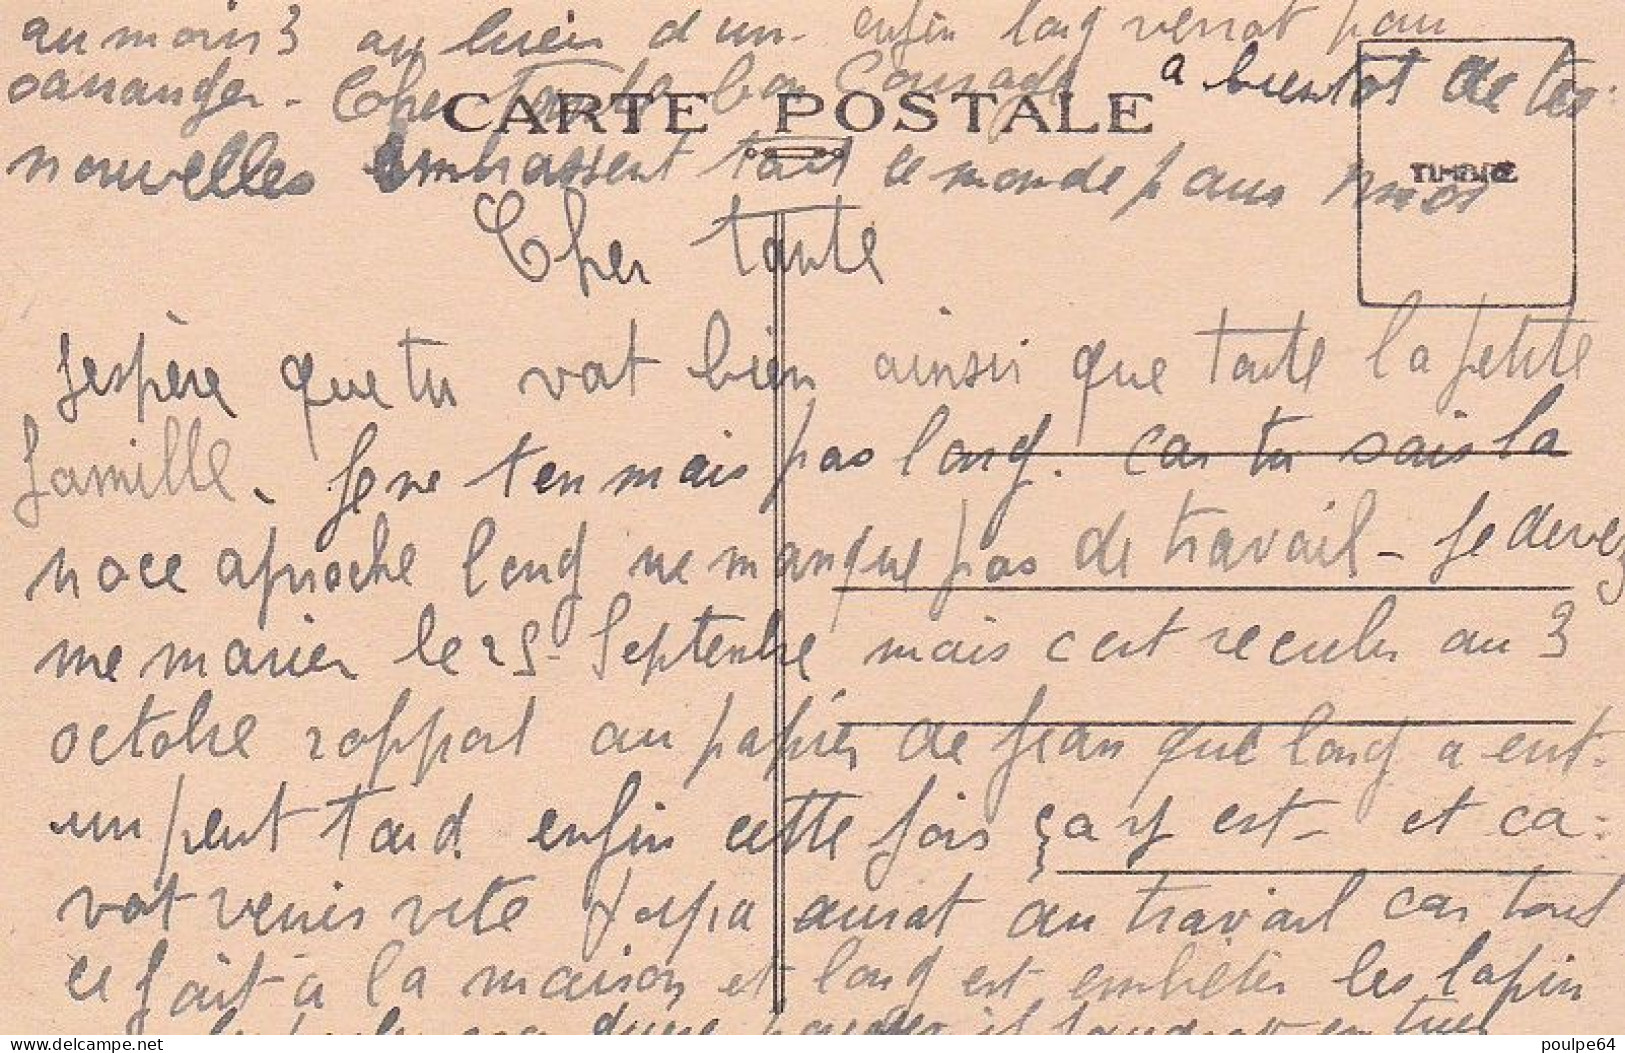 au moins 3 au lieu d'un - enfin long verrat pour
s'arranger - Cher Tante bon Courage a bientot de tes
CARTE POSTALE
nouvelles embrassent tout le monde pour moi
TIMBRE
Cher tante
J'espère que tu vat bien ainsi que toute la petite
famille. Je ne t'en mais pas long. Car tu sais la
noce aproche long ne manque pas de travail - Je devez
me marier le 25 Septembre mais c'est reculer au 3
octobre rapport au papier de Jean que long a eut.
un peut tard. enfin cette fois ça y est - et ca
vat venir vite Papa aurat du travail car tout
ce fait à la maison et long est embêter les lapin
poulpe64
www.delcampe.net